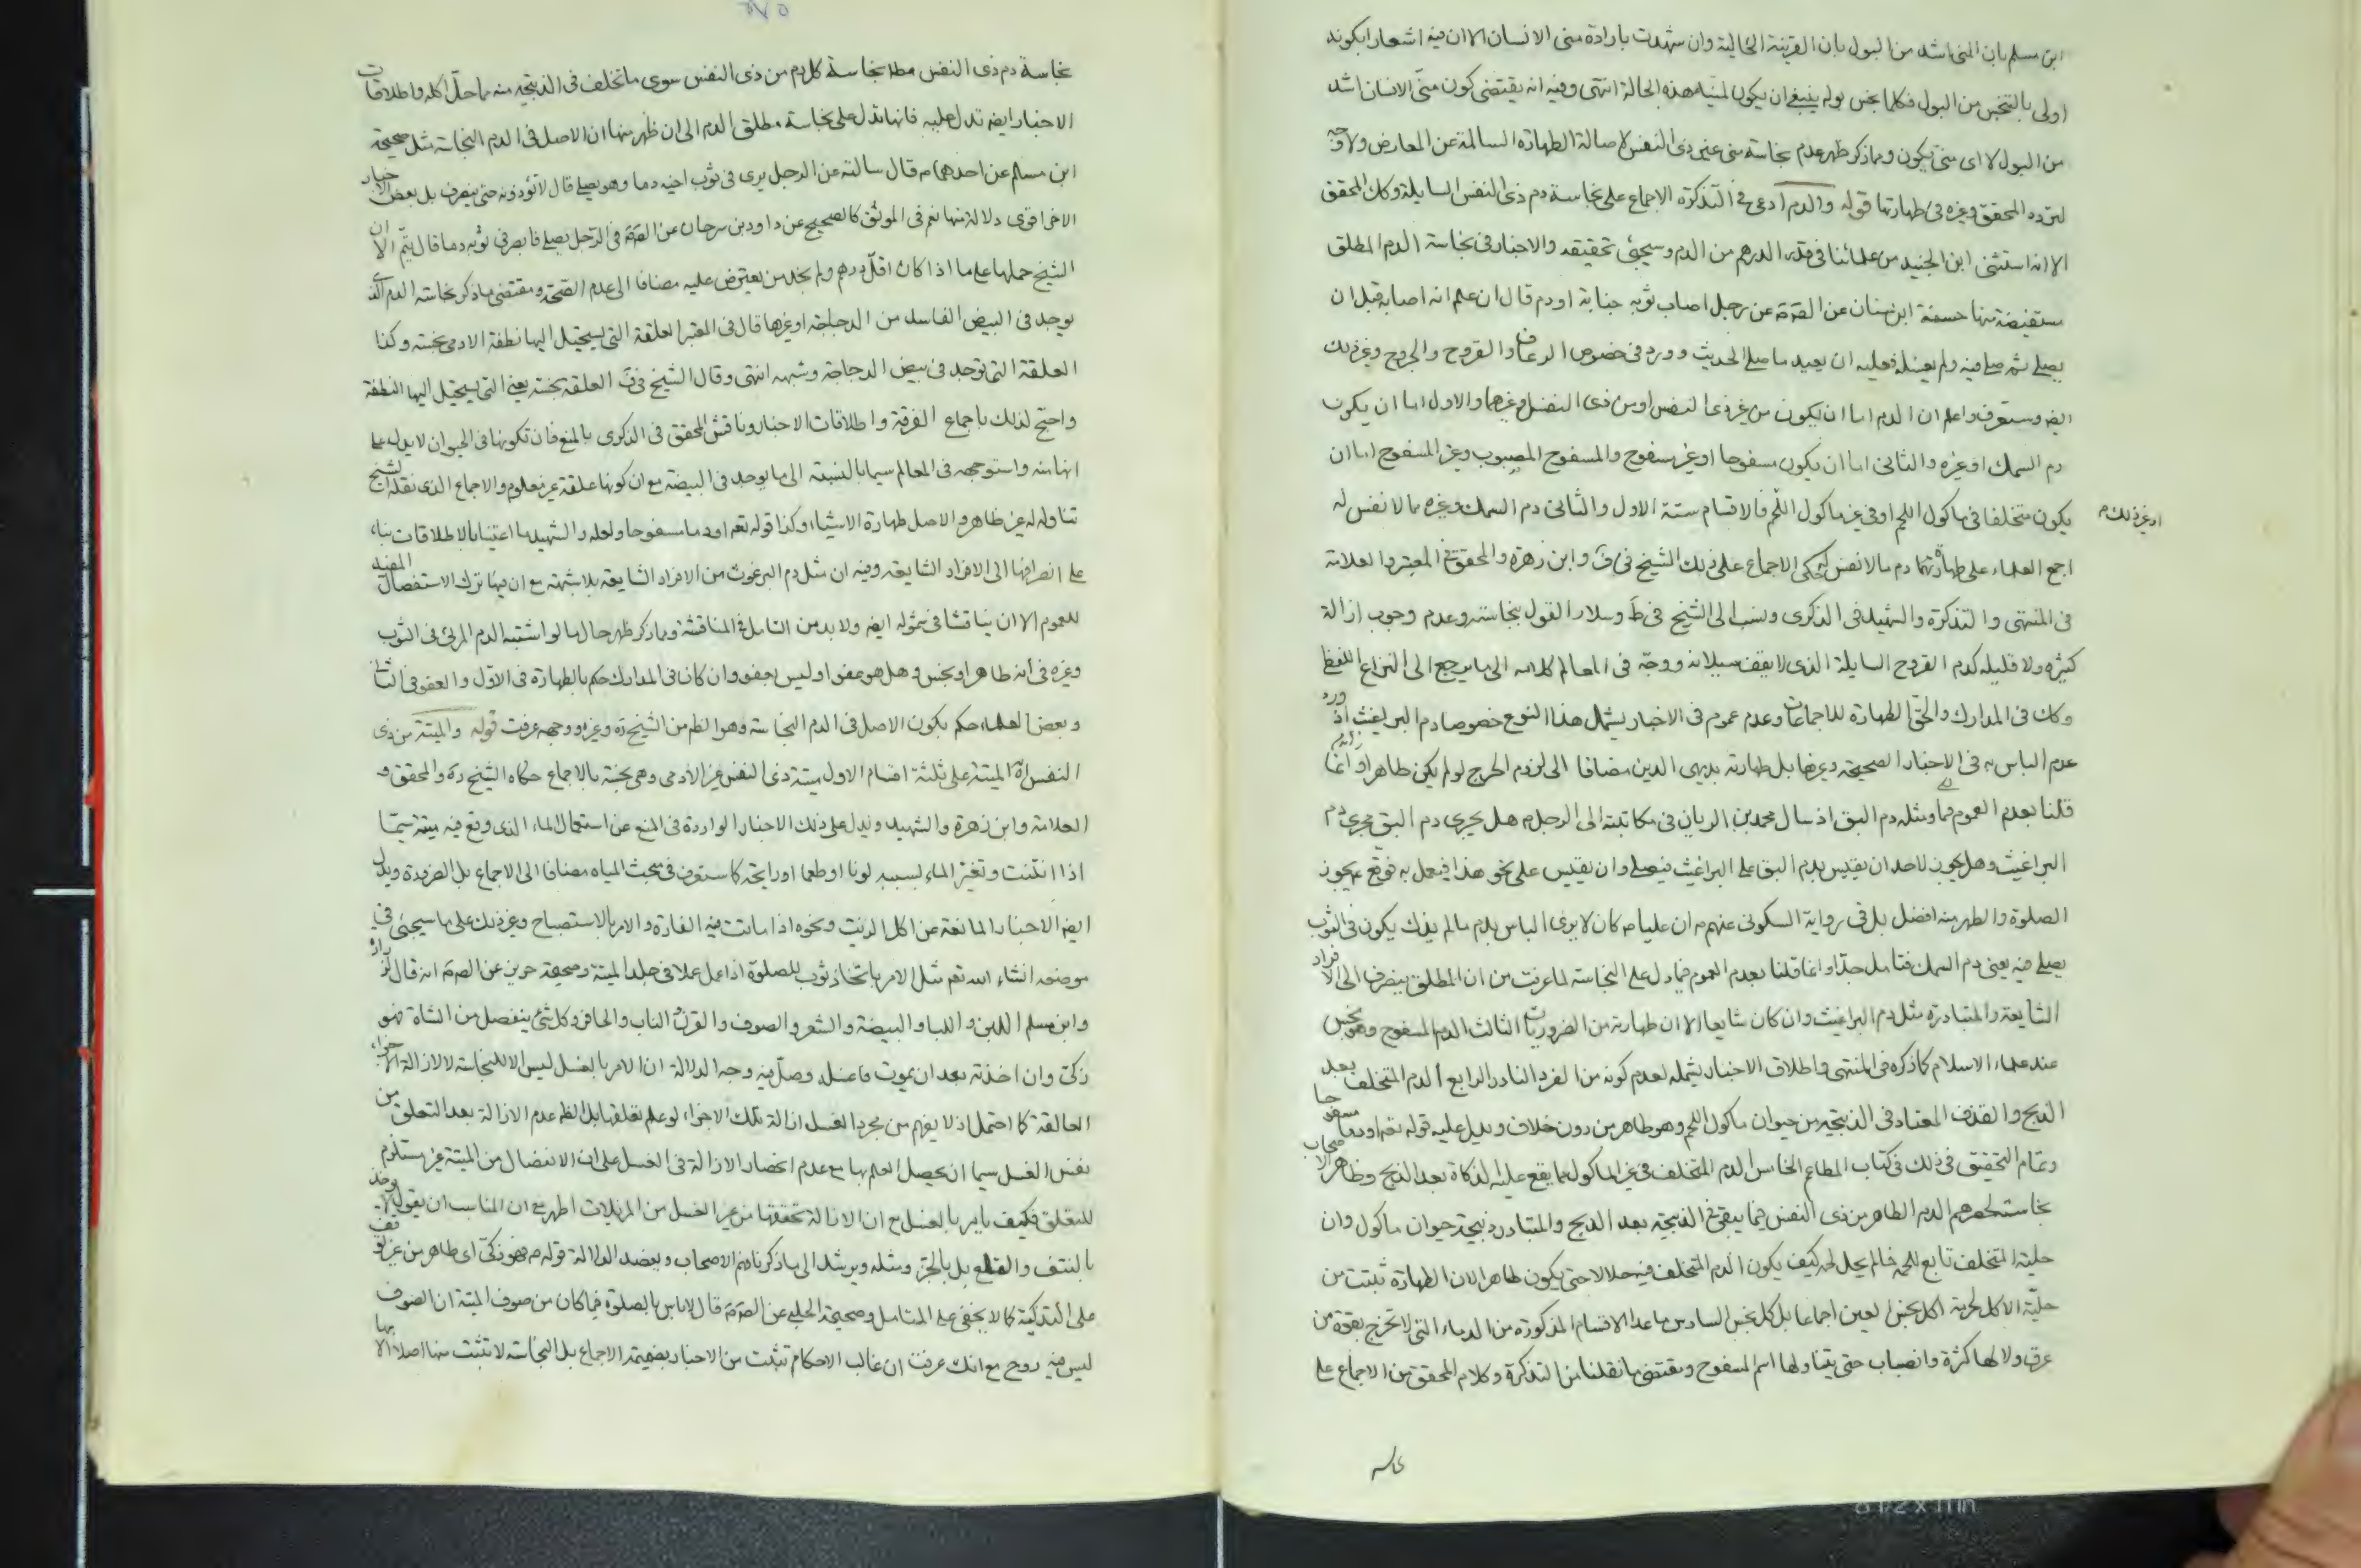 ابن مسلم بان المنى اشد من البول بان القرينة الحالية وان شهدت بارادة منى الانسان الا ان فيه اشعارا بكونه
اولى بالتنجس من البول فكلما نجس بوله ينبغي ان يكون لمنيه هذه الحالة انتهى وفيه انه يقتضى كون منى الانسان اشد
من البول لا اى منى يكون ومما ذكر ظهر عدم نجاسة منى غير ذى النفس لاصالة الطهارة السالمة عن المعارض ولا وجه
لتردد المحقق وغيره فى طهارتها قوله والدم ادعى فى التذكرة الاجماع على نجاسة دم ذى النفس السايلة وكك المحقق
الا انه استثنى ابن الجنيد من علمائنا فى قدر الدرهم من الدم وسيجئ تحقيقه والاخبار فى نجاسة الدم المطلق
مستفيضة منها حسنة ابن سنان عن الصم عن رجل اصاب ثوبه جنابة او دم قال ان علم انه اصابه قبل ان
يصلى ثم صلى فيه ولم يغسله فعليه ان يعيد ما صلى الحديث وورد فى خصوص الرعاف والقروح والجروح وغير ذلك
ايضه وستعرف واعلم ان الدم اما ان يكون من غير ذى النفس او من ذى النفس وغيرها والاول اما ان يكون
دم السمك او غيره والثانى اما ان يكون مسفوحا او غير مسفوح والمسفوح المصبوب وغير المسفوح اما ان
يكون متخلفا فى ماكول اللحم او فى غير ماكول اللحم فالاقسام ستة الاول والثانى دم السمك وغيره مما لا نفس له
او غير ذلك م
اجمع العلماء على طهارتهما دم ما لا نفس له حكى الاجماع على ذلك الشيخ فى ف وابن زهرة والمحقق فى المعتبر والعلامة
فى المنتهى والتذكرة والشهيد فى الذكرى ونسب الى الشيخ فى ط وسلار القول بنجاسته وعدم وجوب ازالة
كثيره ولا قليله كدم القروح السايلة الذى لا يقف سيلانه ووجه فى المعالم كلامه الى ما يرجع الى النزاع اللفظى
وكك فى المدارك والحق الطهارة للاجماعات وعدم عموم فى الاخبار يشمل هذا النوع خصوصا دم البراغيث اذ ورد
عدم الباس به فى الاخبار الصحيحة وغيرها بل طهارته بديهى الدين مضافا الى لزوم الحرج لو لم يكن طاهرا وانما
قلنا بعدم العموم ومثله دم البق اذ سال محمد بن الريان فى مكاتبته الى الرجل م هل يجرى دم البق مجرى دم
البراغيث وهل يجوز لاحد ان يقيس بدم البق على البراغيث فيصلى وان يقيس على نحو هذا فيعمل به فوقع ع يجوز
الصلوة والطهر منه افضل بل فى رواية السكونى عنهم م ان عليا م كان لا يرى الباس بدم ما لم يذك يكون فى الثوب
يصلى فيه يعنى دم السمك فتامل جدا وانما قلنا بعدم العموم فيما دل على النجاسة لما عرفت من ان المطلق ينصرف الى الافراد
الشايعة والمتبادرة مثل دم البراغيث وان كان شايعا الا ان طهارته من الضروريات الثالث الدم المسفوح وهو نجس
عند علماء الاسلام كما ذكره فى المنتهى واطلاق الاخبار يشمله لعدم كونه من الفرد النادر الرابع الدم المتخلف بعد
الذبح والقذف المعتاد فى الذبيحة من حيوان ماكول اللحم وهو طاهر من دون خلاف ويدل عليه قوله تعه او دما مسفوحا
وتمام التحقيق فى ذلك فى كتاب المطاعم الخامس الدم المتخلف فى غير الماكول مما يقع عليه الذكاة بعد الذبح وظاهر الاصحاب
نجاسته لحصرهم الدم الطاهر من ذى النفس فيما يبقى فى الذبيحة بعد الذبح والمتبادر ذبيحة حيوان ماكول وان
حلية المتخلف تابع للحمه فما لم يحل لحمه كيف يكون الدم المتخلف فيه حلالا حتى يكون طاهرا لان الطهارة ثبتت من
حلية الاكل لحرمة اكل نجس العين اجماعا بل كل نجس السادس ما عدا الاقسام المذكورة من الدماء التى لا تخرج بقوة من
عرق ولا لها كثرة وانصباب حتى يتناولها اسم المسفوح ومقتضى ما نقلنا من التذكرة وكلام المحقق من الاجماع على
نجاسة دم ذى النفس مطلا نجاسة كل دم من ذى النفس سوى ما تخلف فى الذبيحة منه مما حل اكله واطلاقات
الاخبار ايضه تدل عليه فانها تدل على نجاسة مطلق الدم الى ان ظهر منها ان الاصل فى الدم النجاسة مثل صحيحة
ابن مسلم عن احدهما م قال سالته عن الرجل يرى فى ثوب اخيه دما وهو يصلى قال لا تؤذونه حتى ينصرف بل بعض الاخبار
الاخر اقوى دلالة منها نعم فى الموثق كالصحيح عن داود بن سرحان عن الصم فى الرجل يصلى فابصر فى ثوبه دما قال يتم الا ان
الشيخ حملها على ما اذا كان اقل من درهم ولم نجد من يعترض عليه مضافا الى عدم الصحة ومقتضى ما ذكر نجاسة الدم الذى
يوجد فى البيض الفاسد من الدجاجة او غيرها قال فى المعتبر العلقة التى يستحيل اليها نطفة الادمى نجسة وكذا
العلقة التى توجد فى بيض الدجاجة وشبهه انتهى وقال الشيخ فى ف العلقة نجسة يعنى التى يستحيل اليها النطفة
واحتج لذلك باجماع الفرقة واطلاقات الاخبار وناقش المحقق فى الذكرى بالمنع فان تكونها فى الحيوان لا يدل على
انها منه واستوجهه فى المعالم سيما بالنسبة الى ما يوجد فى البيضة مع ان كونها علقة غير معلوم والاجماع الذى نقله الشيخ
تناوله له غير ظاهر والاصل طهارة الاشياء وكذا قوله تعه او دما مسفوحا ولعله والشهيد ما اعتنيا بالاطلاقات بناء
على انصرافها الى الافراد الشايعة وفيه ان مثل دم البرغوث من الافراد الشايعة بلا شبهة مع ان فيها ترك الاستفصال المفيد
للعموم الا ان يناقشا فى شموله ايضه ولا بد من التامل فى المناقشة ومما ذكر ظهر حال ما لو اشتبه الدم المرئى فى الثوب
وغيره فى انه طاهر او نجس وهل هو عفو او ليس بعفو وان كان فى المدارك حكم بالطهارة فى الاول والعفو فى الثانى
وبعض العلماء حكم بكون الاصل فى الدم النجاسة وهو الظم من الشيخ ره وغيره ووجهه عرفت قوله والميتة من ذى
النفس اه الميتة على ثلثة اقسام الاول ميتة ذى النفس غير الادمى وهى نجسة بالاجماع حكاه الشيخ ره والمحقق و
العلامة وابن زهرة والشهيد ويدل على ذلك الاخبار الواردة فى المنع عن استعمال الماء الذى وقع فيه ميتة سيما
اذا انتنت وتغير الماء بسببه لونا او طعما او رايحة كما ستعرف فى مبحث المياه مضافا الى الاجماع بل الضرورة ويدل
ايضه الاخبار المانعة عن اكل الزيت ونحوه اذا ماتت فيه الفارة والامر بالاستصباح وغير ذلك على ما سيجئ فى
موضعه انشاء الله تعه مثل الامر باتخاذ ثوب للصلوة اذا عمل عملا فى جلد الميتة وصحيحة حريز عن الصم انه قال لزرارة
وابن مسلم اللبن واللباء والبيضة والشعر والصوف والقرن والناب والحافر وكل شئ ينفصل من الشاة فهو
زكى وان اخذته بعد ان يموت فاغسله وصل فيه وجه الدلالة ان الامر بالغسل ليس الا للنجاسة لا لازالة الاجزاء
العالقة كما احتمل اذ لا يفهم من مجرد الغسل ازالة تلك الاجزاء لو علم تعلقها بل الظم عدم الازالة بعد التعلق من
نفس الغسل سيما ان يحصل العلم بها مع عدم انحصار الازالة فى الغسل على ان الانفصال من الميتة غير مستلزم
للتعلق فكيف يامر بالغسل مع ان الازالة تحققها من غير الغسل من المزيلات اظهر مع ان المناسب ان يقول لا يؤخذ
بالنتف والقلع بل بالجز ومثله ويرشد الى ما ذكرنا فهم الاصحاب ويعضد الدلالة قوله م فهو زكى اى طاهر من غير توقف
على التذكية كما لا يخفى على المتامل وصحيحة الحلبى عن الصم قال لا باس بالصلوة فيما كان من صوف الميتة ان الصوف
ليس فيه روح مع انك عرفت ان غالب الاحكام تثبت من الاخبار بضميمة الاجماع بل النجاسة لا تثبت منها اصلا الا بها